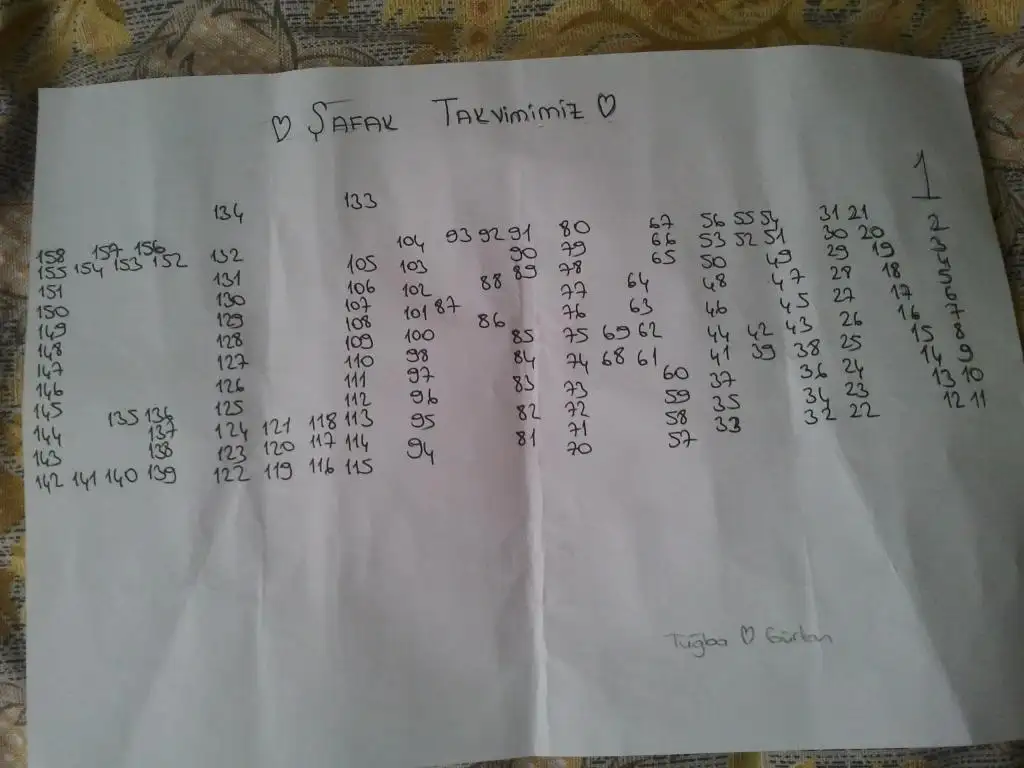 ♡ ŞAFAK TAKVİMİMİZ ♡
1
134 133
158 157 156 132 104 93 92 91 80 67 56 55 54 31 21 2
155 154 153 152 131 105 103 90 79 66 53 52 51 30 20 3
151 130 106 102 88 89 78 65 50 49 29 19 4
150 129 107 101 87 77 64 48 47 28 18 5
149 128 108 100 86 76 63 46 45 27 17 6
148 127 109 98 85 75 69 62 44 42 43 26 16 7
147 126 110 97 84 74 68 61 41 39 38 25 15 8
146 125 111 96 83 73 60 37 36 24 14 9
145 135 136 124 121 118 112 95 82 72 59 35 34 23 13 10
144 137 123 120 117 113 94 81 71 58 33 32 22 12 11
143 138 122 119 116 114 70 57
142 141 140 139 115
Tuğba ♡ Gürkan